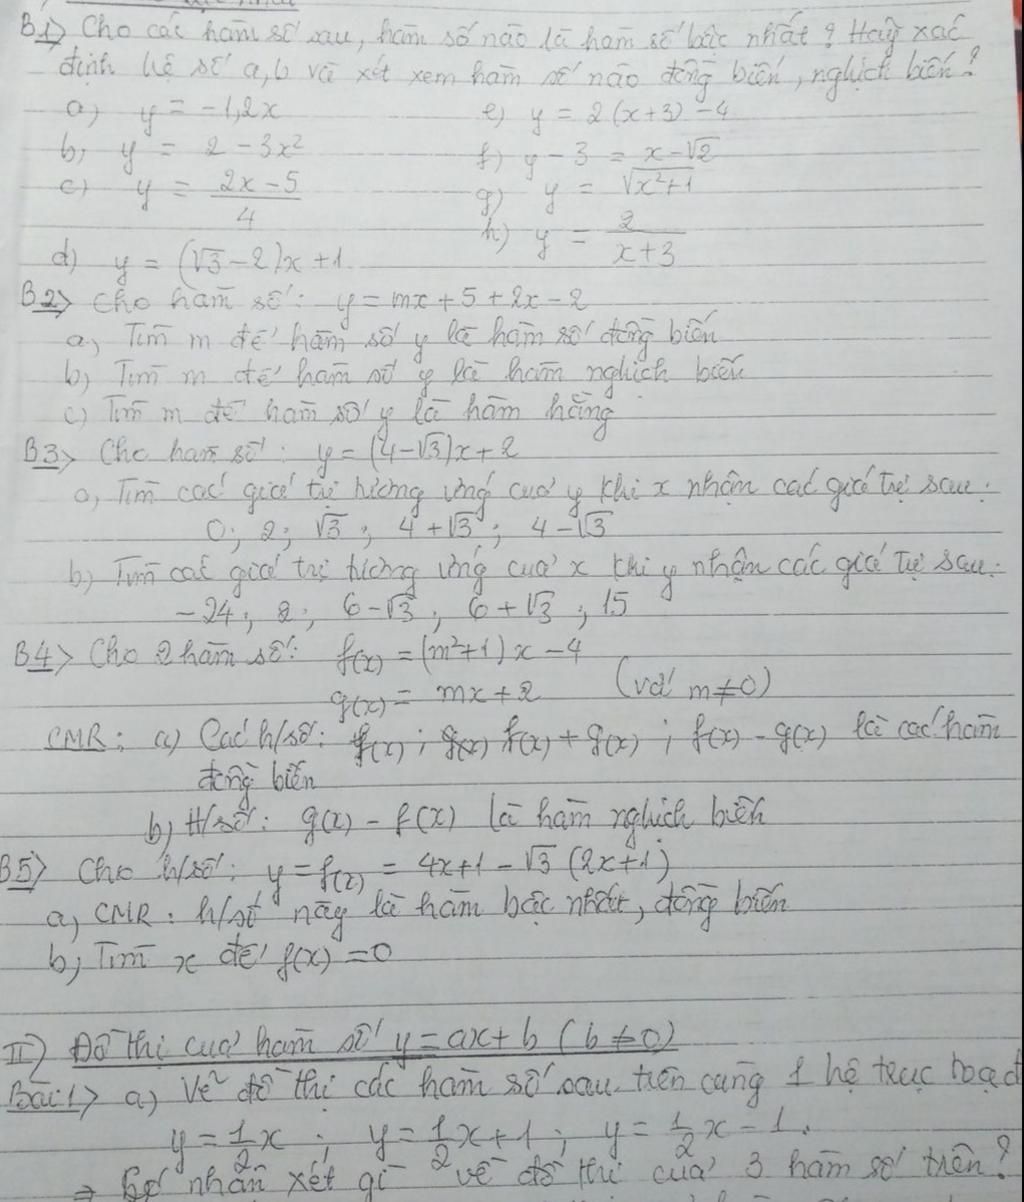 B1> Cho các hàm số sau, hàm số nào là hàm số bậc nhất? Hãy xác
định hệ số a, b và xét xem hàm số nào đồng biến, nghịch biến?
a) y = -1,2x
e) y = 2(x+3) - 4
b, y = 2 - 3x²
f) y - 3 = x - √2
c) y = (2x - 5)/4
g) y = √(x²+1)
h) y = 2/(x+3)
d) y = (√3 - 2)x + 1
B2> Cho hàm số: y = mx + 5 + 2x - 2
a, Tìm m để hàm số y là hàm số đồng biến
b, Tìm m để hàm số y là hàm nghịch biến
c) Tìm m để hàm số y là hàm hằng
B3> Cho hàm số: y = (4 - √3)x + 2
a, Tìm các giá trị tương ứng của y khi x nhận các giá trị sau:
0; 2; √3; 4 + √3; 4 - √3
b) Tìm các giá trị tương ứng của x khi y nhận các giá trị sau:
-24; 2; 6 - √3; 6 + √3; 15
B4> Cho 2 hàm số: f(x) = (m²+1)x - 4
g(x) = mx + 2 (với m ≠ 0)
CMR: a) Các h/số: f(x); g(x) f(x) + g(x); f(x) - g(x) là các hàm
đồng biến
b, H/số: g(x) - f(x) là hàm nghịch biến
B5> Cho h/số: y = f(x) = 4x + 1 - √3 (2x + 1)
a, CMR: h/số này là hàm bậc nhất, đồng biến
b, Tìm x để f(x) = 0
II) Đồ thị của hàm số y = ax + b (b ≠ 0)
Bài 1> a) Vẽ đồ thị các hàm số sau trên cùng 1 hệ trục toạ đ
y = 1/2x; y = 1/2x + 1; y = 1/2x - 1.
⇒ Có nhận xét gì về đồ thị của 3 hàm số trên?